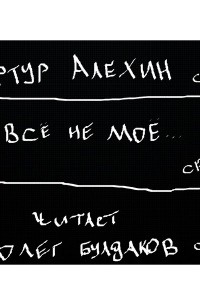 РТУР АЛЕХИН С
ВСЁ НЕ МОЁ...
СК
ЧИТАЕТ
ОЛЕГ БУЛДАКОВ С